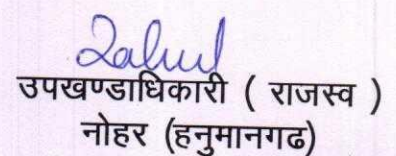 Rahul
उपखण्डाधिकारी ( राजस्व )
नोहर (हनुमानगढ)